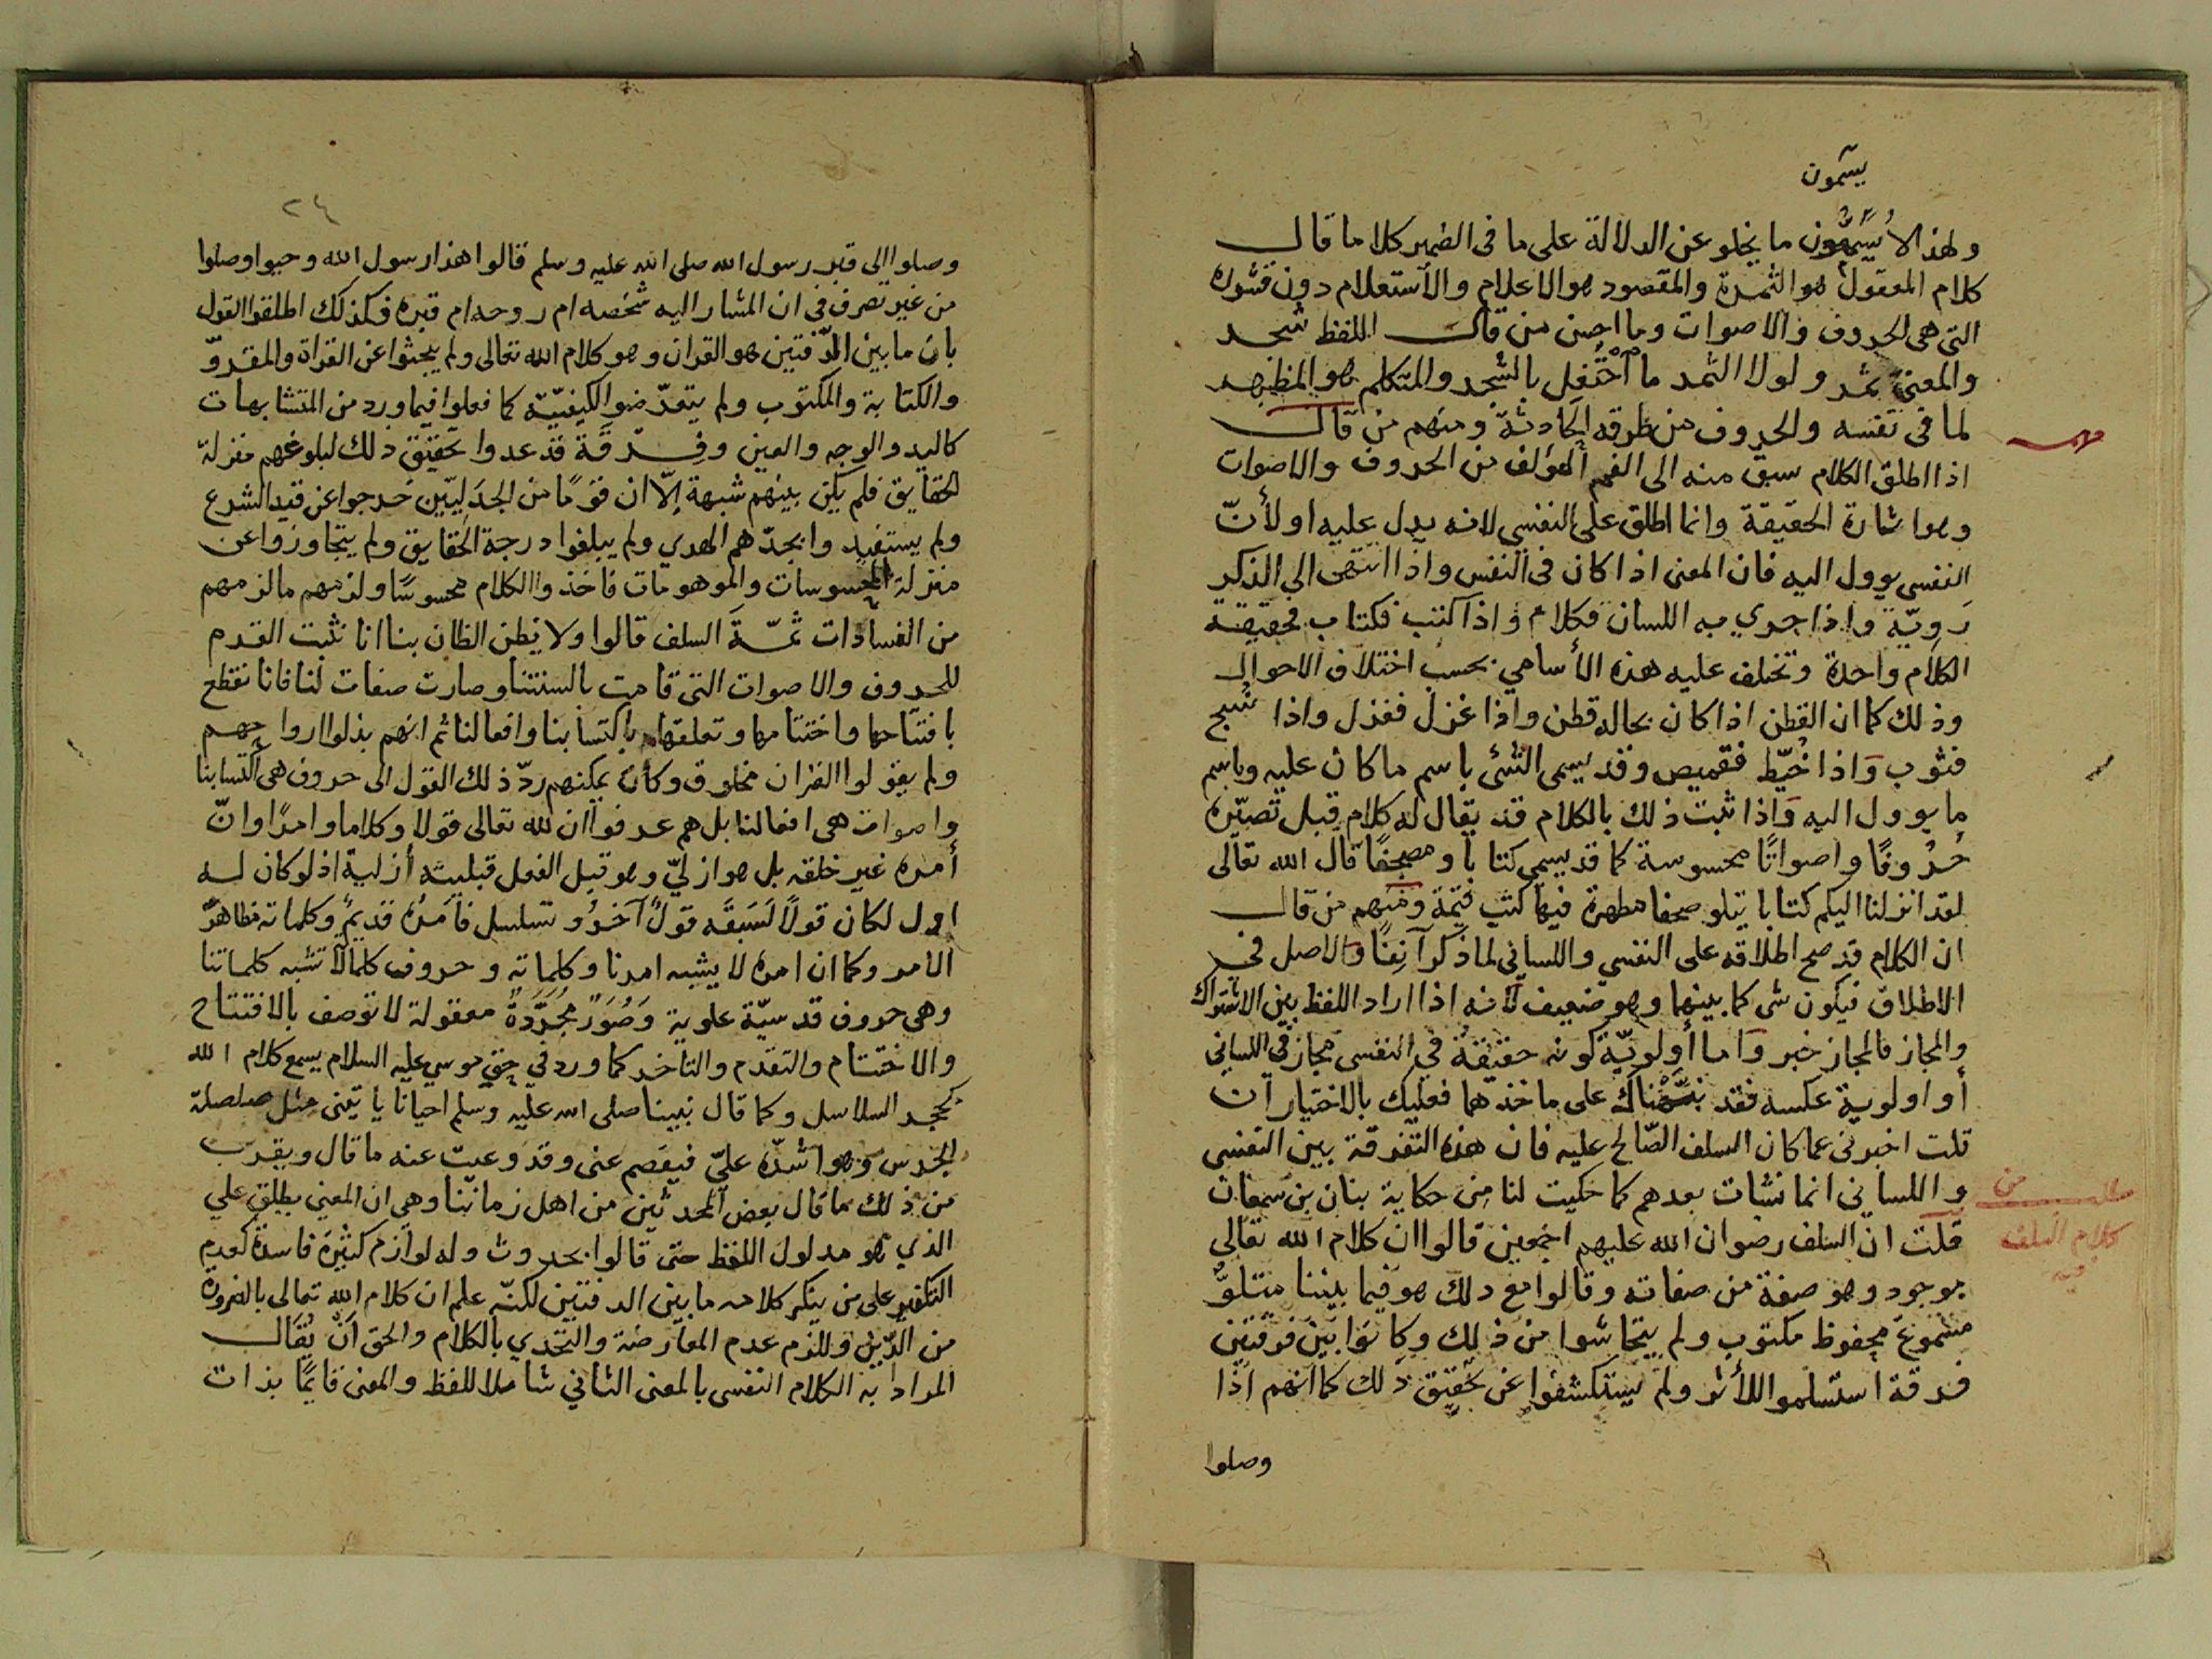 يسمون
ولهذا لا يسمون ما يخلو عن الدلالة على ما فى الضمير كلاما قال
كلام المعقول هو الثمرة والمقصود هو الاعلام والاستعلام دون قشوره
التى هى الحروف والاصوات وما احسن من قال اللفظ شجر
والمعنى ثمر ولولا الثمر ما احتفل بالشجر والمتكلم هو المظهر
لما فى نفسه والحروف من طرقه الحادثة ومنهم من قال
اذا اطلق الكلام سبق منه الى الفهم المؤلف من الحروف والاصوات
وهو اشارة الحقيقة وانما اطلق على النفسى لانه يدل عليه او لأنّ
النفسى يوول اليه فان المعنى اذا كان فى النفس واذا انتهى الى الذكر
رَويّة واذا جرى به اللسان فكلام واذا كتب فكتاب فحقيقة
الكلام واحدة وتختلف عليه هذه الأسامى بحسب اختلاف الاحوال
وذلك كما ان القطن اذا كان بحاله قطن واذا غزل فغزل واذا نُسج
فثوب وَاذا خُيّط فقميص وقد يسمى الشئ باسم ما كان عليه وباسم
ما يوول اليه وَاذا ثبت ذلك بالكلام قد يقال له كلام قبل تصيّره
حُرُوفًا واصواتًا محسوسة كما قد يسمى كتابا ومصحفًا قال الله تعالى
لقد انزلنا اليكم كتابا يتلو صحفا مطهرة فيها كتب قيّمة ومنهم من قال
ان الكلام قد صح اطلاقه على النفسي واللساني لما ذكر آنِفًا والاصل فى
الاطلاق فيكون شى كما بينهما وهو ضعيف لأنه اذا اراد اللفظ بين الاشتراك
والمجاز فالمجاز خير وَاما أولويّة كونه حقيقةً في النفسى مجاز في اللسانى
أو اولوية عكسه فقد نبّهناك على ماخذهما فعليك بالاختيار ان
قلت اخبرنى عما كان السلف الصّالح عليه فان هذه التفرقة بين النفسى
واللسانى انما نشات بعدهم كما حكيت لنا من حكاية بنان بن سمعان
قلت ان السلف رضوان الله عليهم اجمعين قالوا ان كلام الله تعالى
موجود وهو صفة من صفاته وقالوا مع ذلك هو فيما بيننا متلوٌّ
مسموع محفوظ مكتوب ولم يتحاشوا من ذلك وكانوا بين فرقتين
فرقة استسلموا للأثر ولم يستكشفوا عن تحقيق ذلك كما انهم اذا
وصلوا
كلام السلف
٢٤
وصلوا الى قبر رسول الله صلى الله عليه وسلم قالوا هذا رسول الله وحيوا وصلوا
من غير تصرف فى ان المشار اليه شخصه ام روحه ام قبره فكذلك اطلقوا القول
بان ما بين الدّفتين هو القران وهو كلام الله تعالى ولم يبحثوا عن القراة والمقروّ
والكتابة والمكتوب ولم يتعرّضوا لكيفيّة كما فعلوا فيما ورد من المتشابهات
كاليد والوجه والعين وفِرْقَة قد عدوا تحقيق ذلك لبلوغهم منزلة
الحقايق فلم يكن بينهم شبهة إلّا ان قومًا من الجدَليّين خرجوا عن قيد الشرع
ولم يستفيد وابجدّهم الهدي ولم يبلغوا درجة الحقايق ولم يتجاوزوا عن
منزلة المحسوسات والموهومات فاخذوا الكلام محسوسًا ولزمهم ما لزمهم
من الفسادات ثمّة السلف قالوا ولا يظن الظان بنا انا نثبت القدم
للحروف والاصوات التى قامت بالسنتنا وصارت صفات لنا فانا نقطع
بافتتاحها واختتامها وتعلقها باكتسابنا وافعالنا ثم انهم بذلوا ارواحهم
ولم يقولوا القران مخلوق وكان يمكنهم ردّ ذلك القول الى حروف هى اكتسابنا
واصوات هى افعالنا بل هم عرفوا ان لله تعالى قولا وكلاما وامرًا وانّ
أمره غير خلقه بل هو ازليّ وهو قبل الفعل قبليته أزلية اذ لو كان له
اول لكان قولًا لَسَبَقَه قولٌ آخر وتسلسل فأمره قديم وكلماته مظاهرُ
الامر وكما ان امره لا يشبه امرنا وكلماته وحروف كلما لا تشبه كلماتنا
وهى حروف قدسيّة علوية وَصُوَرٌ مُجَرَّدةٌ معقولة لا توصف بالافتتاح
والاختتام والتقدم والتاخر كما ورد فى حق موسى عليه السلام يسمع كلام الله
كجر السلاسل وكما قال نبينا صلى الله عليه وسلم احيانا ياتينى مثل صلصلة
الجرس وهو اشدّه عليّ فيفصم عنى وقد وعيت عنه ما قال ويقرب
من ذلك ما قال بعض المحدثين من اهل زماننا وهى ان المعنى يطلق على
الذي هو مدلول اللفظ حتى قالوا بحدوث وله لوازم كثيرة فاسدة كعدم
التكفير على من ينكر كلامه ما بين الدفتين لكنّه علم ان كلام الله تعالى بالضرورة
من الدّين وللزم عدم المعارضة والتحدي بالكلام والحق أنْ يُقَال
المراد به الكلام النفسى بالمعنى الثاني شاملا للفظ والمعنى قايمًا بذات